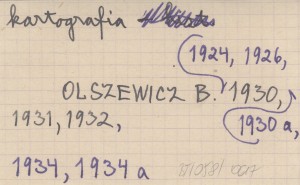 kartografia
1924, 1926,
OLSZEWICZ B. 1930,
1930 a,
1931, 1932,
1934, 1934 a